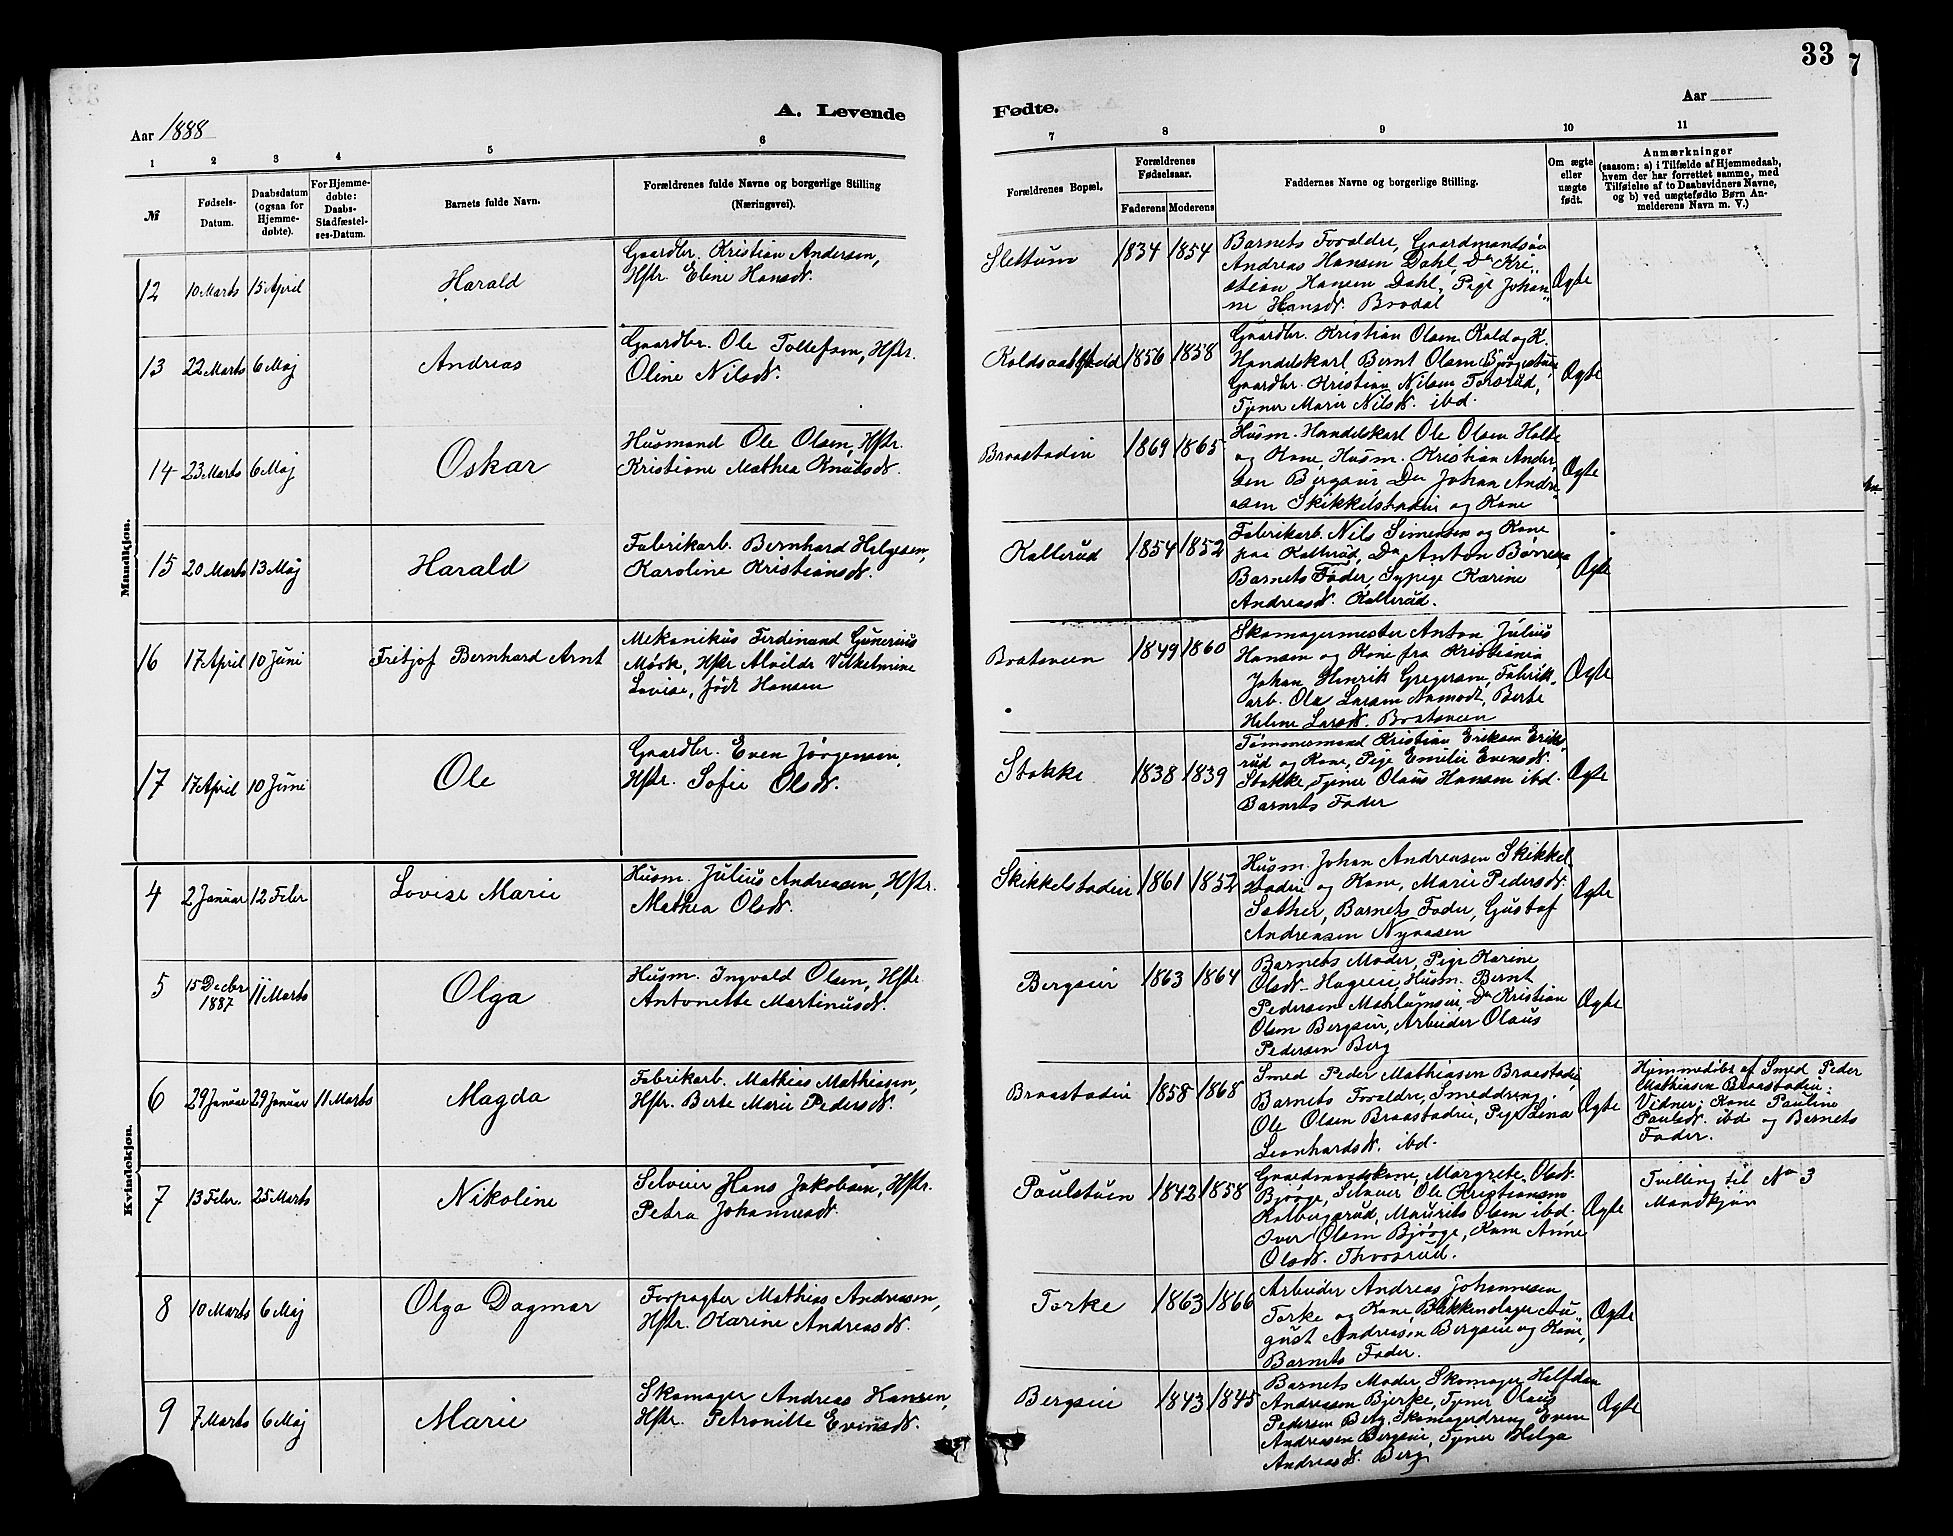 33
7
A. Levende
Fødte.
Aar 1888
Aar
1
2
3
4
5
6
7
8
9
10
11
№
Fødsels-
Datum.
Daabsdatum
(ogsaa for
Hjemme-
døbte).
For Hjemme-
døbte:
Daabs-
Stadfæstel-
ses-Datum.
Barnets fulde Navn.
Forældrenes fulde Navne og borgerlige Stilling
(Næringsvei).
Forældrenes Bopæl.
Forældrenes
Fødselsaar.
Faderens
Moderens
Faddernes Navne og borgerlige Stilling.
Om ægte
eller
uægte
født.
Anmærkninger
(saasom: a) i Tilfælde af Hjemmedaab,
hvem der har forrettet samme, med
Tilføielse af to Daabsvidners Navne,
og b) ved uægtefødte Børn An-
melderens Navn m. V.)
Mandkjøn.
12 10 Marts 15 April Harald
Gaardbr. Kristian Andersen,
Hstr. Eline Hansd.
Slettum 1834 1854
Barnets Forældre, Gaardmandsøn
Andreas Hansen Dahl, Do Kri-
stian Hansen Dahl, Pige Johan-
ne Hansd. Brodal
Ægte
13 22 Marts 6 Maj Andreas
Gaardbr. Ole Tollefsen, Hstr.
Oline Nilsd.
1856 1858
Gaardbr. Kristian Olsen Kold og K.
Handelskarl Bernt Olsen
Gaardbr. Kristian Nilsen Torsrud,
Tjener Marie Nilsd. ibd.
Ægte
14 23 Marts 6 Maj Oskar
Husmand Ole Olsen, Hstr.
Kristiane Mathea Knudsd.
Braastadeie 1869 1865
Husm. Handelskarl Ole Olsen Holte
og Kone, Husm. Kristian Ander-
sen Bergseie Do Johan Andre-
asen Skikkelstadeie og Kone
Ægte
15 20 Marts 13 Maj Harald
Fabrikarb. Bernhard Helgesen,
Karoline Kristiansd.
Kallerud 1854 1852
Fabrikarb. Nils Simensen og Kone
paa Kallerud, Do Anton
Barnets Fader, Sypige Karine
Andreasd. Kallerud.
Ægte
16 17 April 10 Juni Fritjof Bernhard Arnt
Mekanikus Ferdinand Gunerius
Mørk, Hstr Alvilde Vilhelmine
Lovise, født Hansen
Bratsveen 1849 1860
Skomagermester Anton Julius
Hansen og Kone fra Kristiania
Johan Henrik Gregersen, Fabrik-
arb. Ole Larsen Aamodt, Berte
Helene Larsd. Bratsveen
Ægte
17 17 April 10 Juni Ole
Gaardbr. Even Jørgensen,
Hstr. Sofie Olsd.
Stokke 1838 1839
Tømmermand Kristian Eriksen Eriks-
rud og Kone, Pige Emilie Evensd.
Stokke, Tjener Olaus Hansen ibd.
Barnets Fader
Ægte
Kvindekjøn.
4 2 Januar 12 Febr Lovise Marie
Husm. Julius Andreasen, Hstr.
Mathea Olsd.
Skikkelstadeie 1861 1852
Husm. Johan Andreasen Skikkel-
stadeie og Kone, Marie Pedersd.
Sæther, Barnets Fader, Gustaf
Andreasen Nyaasen
Ægte
5 15 Decbr 1887 11 Marts Olga
Husm. Ingvald Olsen, Hstr.
Antonette Martinusd.
Bergseie 1863 1864
Barnets Moder, Pige Karine
Olsd. Hageeie, Husm. Bernt
Pedersen Do Kristian
Olsen Bergseie, Arbeider Olaus
Pedersen Berg
Ægte
6 29 Januar 29 Januar 11 Marts Magda
Fabrikarb. Mathias Mathiasen,
Hstr. Berte Marie Pedersd.
Braastadeie 1858 1868
Smed Peder Mathiasen Braastadeie
Barnets Forældre, Smeddreng
Ole Olsen Braastadeie, Pige Lena
Leonhardsd. ibd.
Ægte
Hjemmedøbt af Smed Peder
Mathiasen Braastadeie:
Vidner: Kone Pauline
Paulsd. ibd og Barnets
Fader.
7 13 Febr. 25 Marts Nikoline
Selveier Hans Jakobsen, Hstr.
Petra Johannesd.
Paulstuen 1842 1858
Gaardmandskone, Margrete Olsd.
Bjørge, Selveier Ole Kristiansen
Kolbugsrud, Maurits Olsen ibd.
Iver Olsen Bjørge, Kone Anne
Olsd. Thoosrud.
Ægte
Tvilling til No 3
Mandkjøn
8 10 Marts 6 Maj Olga Dagmar
Forpagter Mathias Andreasen,
Hstr. Karine Andreasd.
Torke 1863 1866
Arbeider Andreas Johannesen
Torke og Kone, Blikkenslager Au-
gust Andreasen Bergseie og Kone,
Barnets Fader.
Ægte
9 7 Marts 6 Maj Marie
Skomager Andreas Hansen,
Hstr. Petronille Evensd.
Bergseie 1843 1845
Barnets Moder, Skomager Halfdan
Andreasen Bjerke, Tjener Olaus
Pedersen Berg, Skomagerdreng Even
Andreasen Bergseie, Tjener Helga
Andreasd. Berg
Ægte